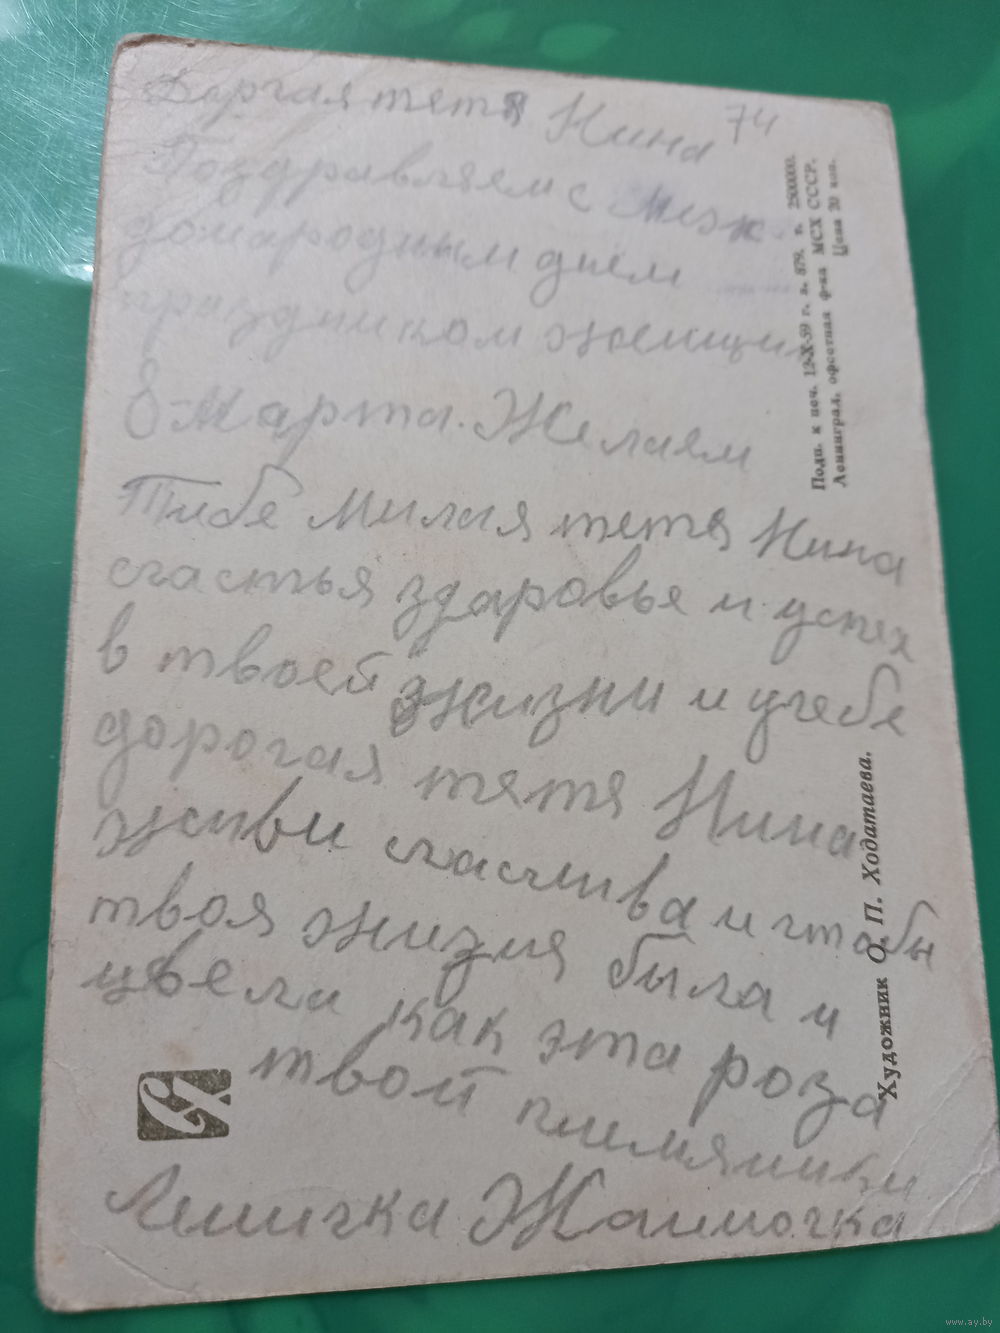 Доргая тетя Нина 74
Поздравляем с Меж
зонародным днем
праздником женщин
8-Марта. Желаем
Тибе милая тетя Нина
счастья здоровья и успех
в твоей жизни и учебе
дорогая тятя Нина
живи счаслива и чтобы
твоя жизня была и
цвела как эта роза
твои племяники
Жаимочка
Подп. к печ. 12-X-59 г. з. 879. т. 2500000.
Ленинград, офсетная ф-ка МСХ СССР.
Цена 20 коп.
Художник О. П. Ходатаева.
www.ay.by